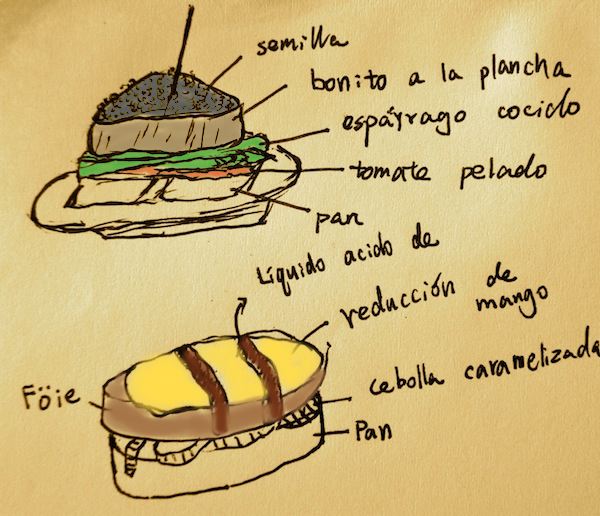 semilla
bonito a la plancha
espárrago cocido
tomate pelado
pan
Líquido acido de
reducción de
mango
Föie
cebolla carametizada
Pan